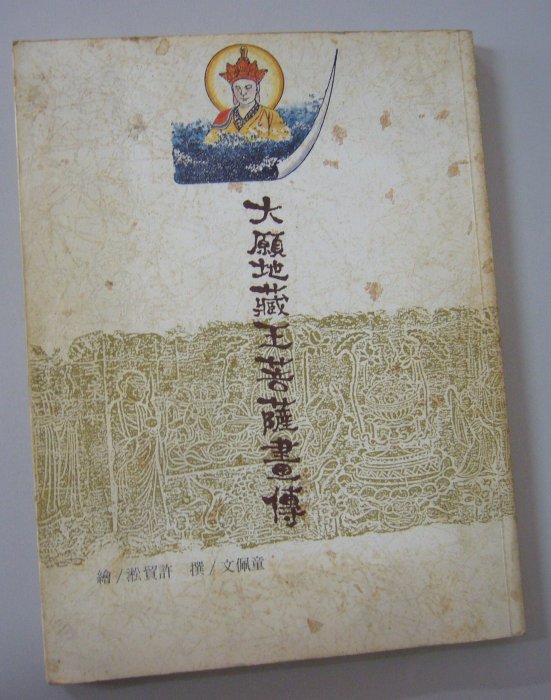 大願地藏王菩薩畫傳
童佩文/撰 許賀淞/繪